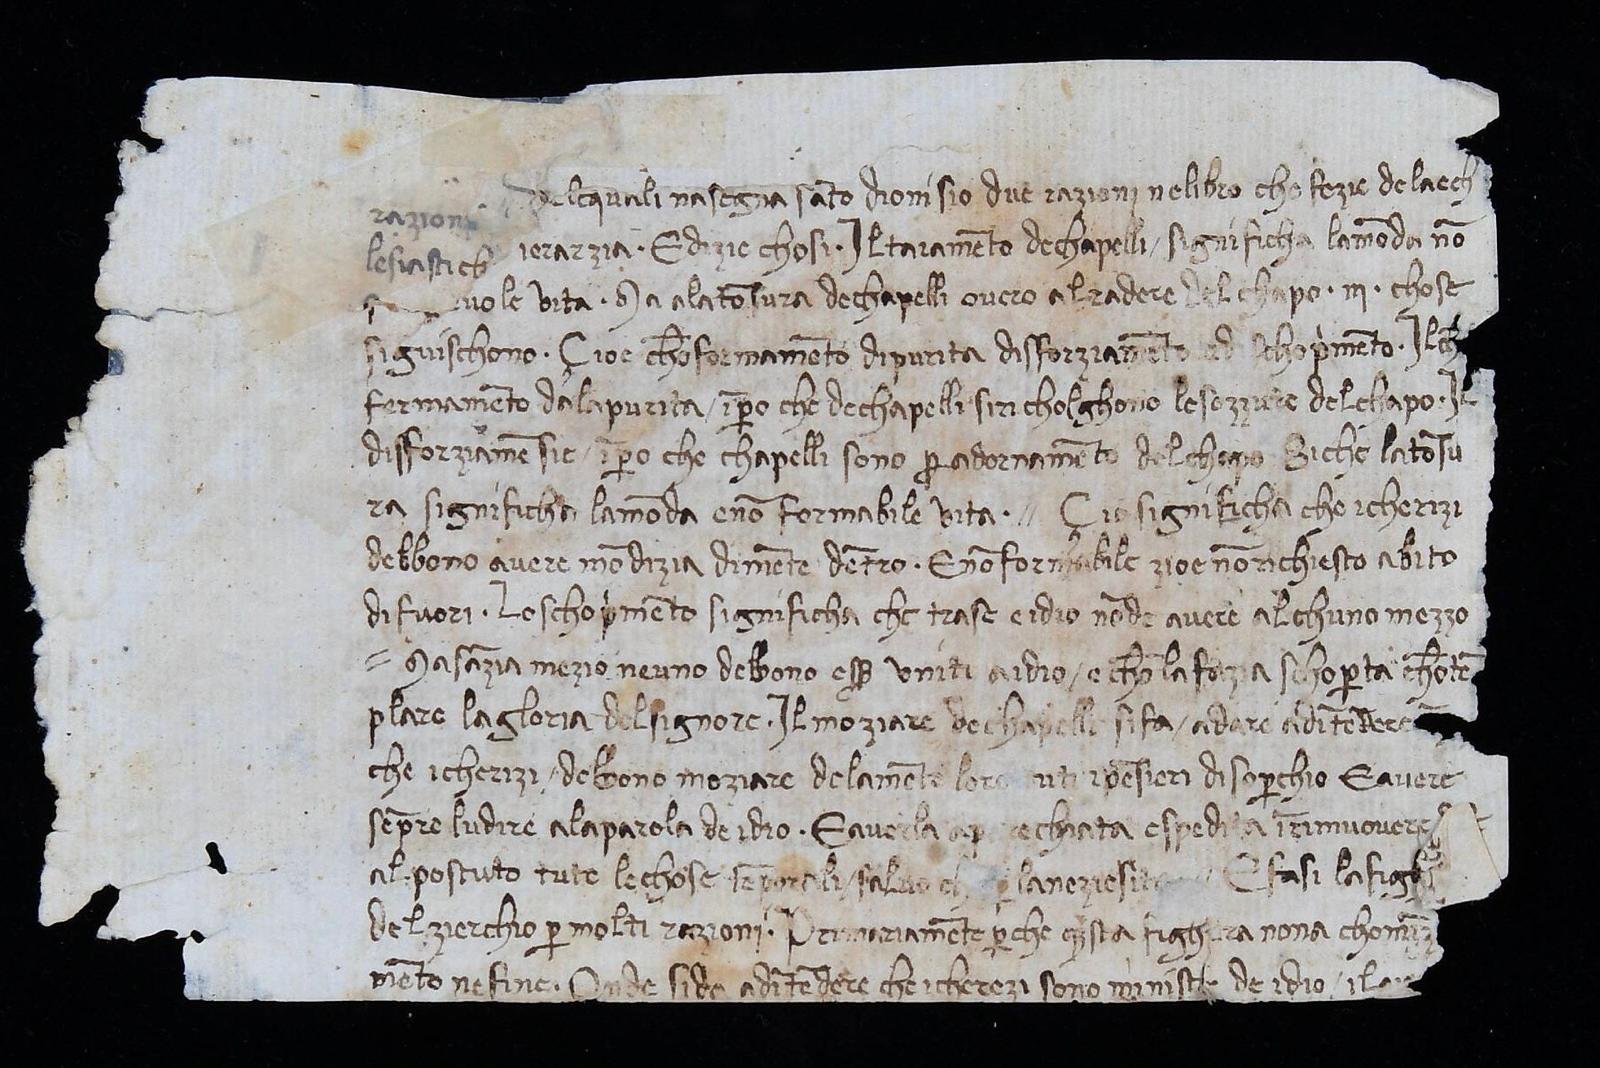 delequali nasegna sāto dionisio due razioni nelibro che fezie delaech
razioni
lesiastich ierarzia · Edizie chosi · Il taiamēto dechapelli / significha lamōda nō
uole vita · Ma alatōsura dechapelli overo alradere del chapo · iii · chose
siguischono · Çioe chōformamēto dipurita disforziamēto ed ischoṗmēto · Il chō
fermamēto dalapurita / īꝑo che dechapelli siricholghono lesozzure delchapo · Il
disforziamēsie / īꝑo che chapelli sono ꝓ adornamēto delchapo Siche latōsu
ra significha lamōda enō formabile vita · // Çio significha che icherizi
debbono avere mōdizia dimēte dētro · Enō formabile zioe nō richiesto abito
difuori · Loschoṗmēto significha che trase eidio nōde avere alchuno mezzo
= Masāzia mezio neuno debbono eẜẜ uniti aidio / e chōla fazia schoꝑta chōtē
plare lagloria delsignore · Il moziare dechapelli sifa / adare aditēdere
che icherizi / debbono moziare delamēte loro ipēsieri disoꝑchio Eavere
sēpre ludire alaparola de idio · Eaverla rechiata espedita īrimuovere
alpostuto tute lechose tēporali / salvo laneziesita // Efasi lafighu
delzierchio ꝑ molti razioni · Primariamēte ꝑche q̄sta fighura nona chomīzia
mēto nefine · Onde sida aditēdere che icherezi sono ministri de idio /